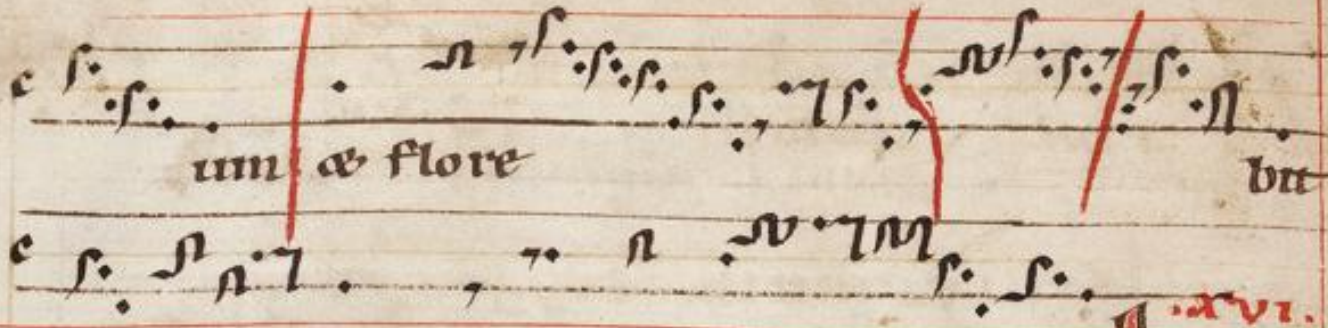 um & flore bit
.xvi.